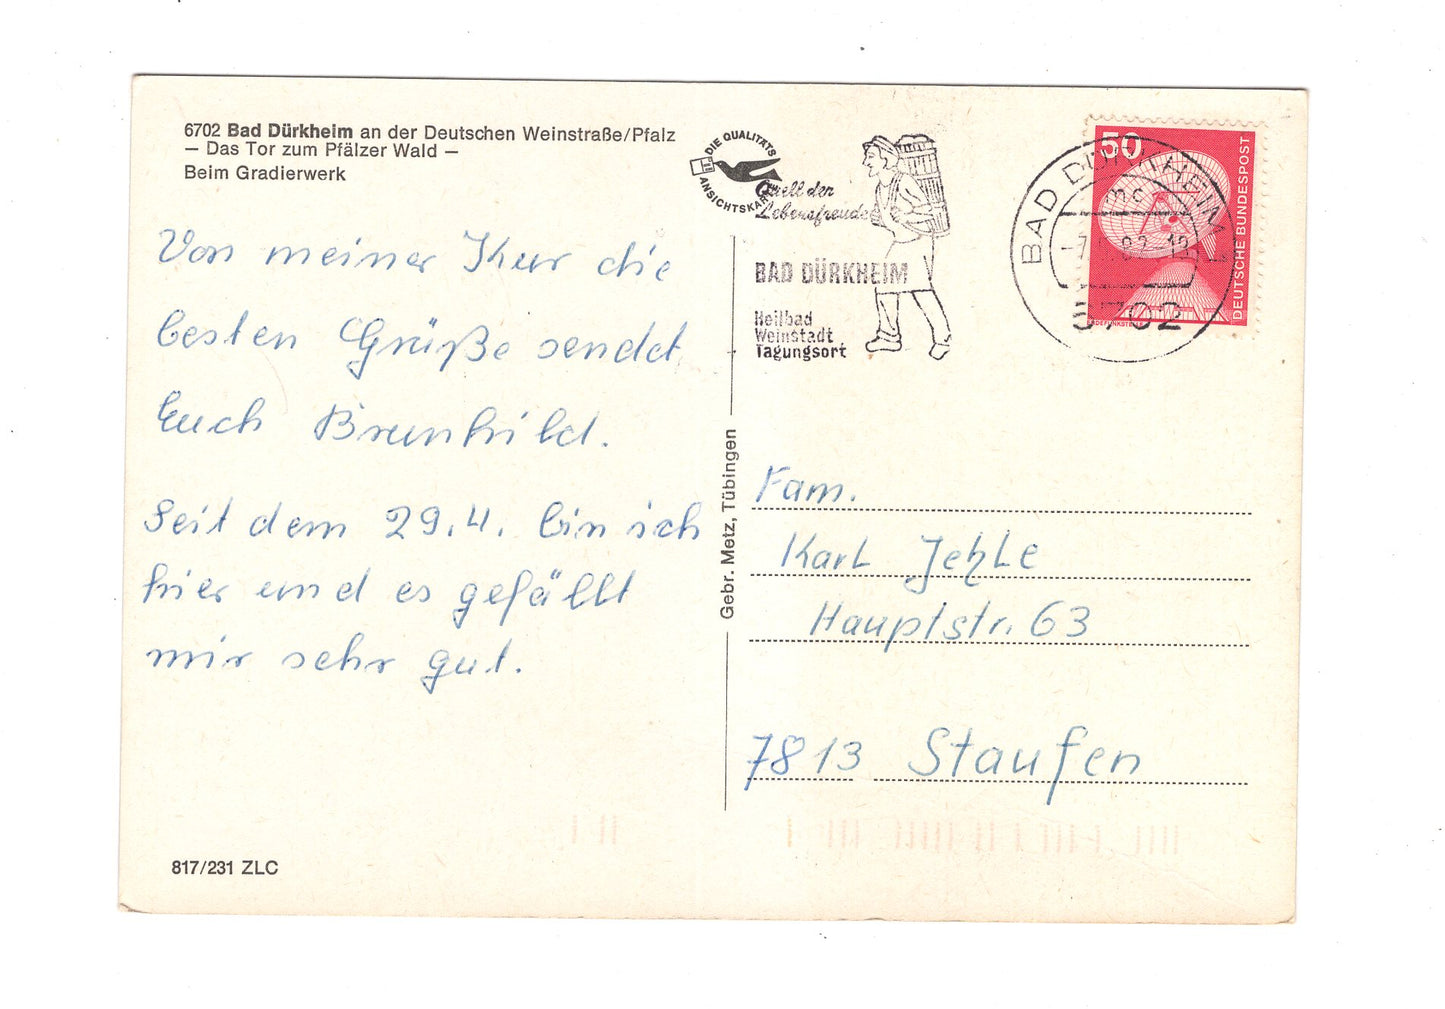 6702 Bad Dürkheim an der Deutschen Weinstraße/Pfalz
— Das Tor zum Pfälzer Wald —
Beim Gradierwerk
DIE QUALITÄTS
ANSICHTSKARTE
Von meiner Kur die
besten Grüße sendet
Euch Brunhild.
Seit dem 29.4. bin ich
hier und es gefällt
mir sehr gut.
817/231 ZLC
Gebr. Metz, Tübingen
Quell der
Lebensfreude
BAD DÜRKHEIM
Heilbad
Weinstadt
Tagungsort
BAD DÜRKHEIM 1
mc
6702
50
DEUTSCHE BUNDESPOST
Fam.
Karl Jehle
Hauptstr. 63
7813 Staufen